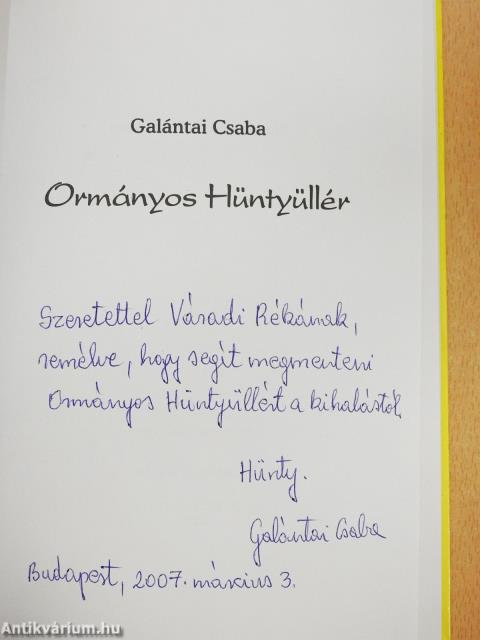 Galántai Csaba
Ormányos Hüntyüllér
Szeretettel Váradi Rékának,
remélve, hogy segít megmenteni
Ormányos Hüntyüllért a kihalástól.
Hünty.
Galántai Csaba
Budapest, 2007. március 3.
Antikvárium.hu